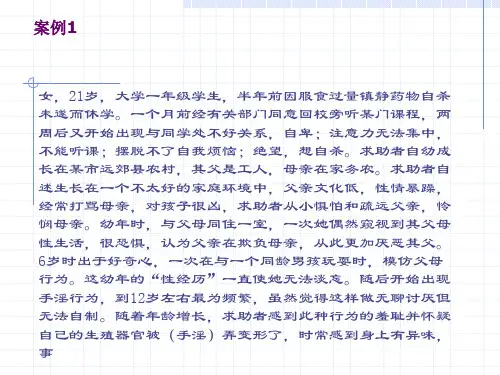 案例1
女，21岁，大学一年级学生，半年前因服食过量镇静药物自杀
未遂而休学。一个月前经有关部门同意回校旁听某门课程，两
周后又开始出现与同学处不好关系，自卑；注意力无法集中，
不能听课；摆脱不了自我烦恼；绝望，想自杀。求助者自幼成
长在某市远郊县农村，其父是工人，母亲在家务农。求助者自
述生长在一个不太好的家庭环境中，父亲文化低，性情暴躁，
经常打骂母亲，对孩子很凶，求助者从小惧怕和疏远父亲，怜
悯母亲。幼年时，与父母同住一室，一次她偶然窥视到其父母
性生活，很恐惧，认为父亲在欺负母亲，从此更加厌恶其父。
6岁时出于好奇心，一次在与一个同龄男孩玩耍时，模仿父母
行为。这幼年的“性经历”一直使她无法淡忘。随后开始出现
手淫行为，到12岁左右最为频繁，虽然觉得这样做无聊讨厌但
无法自制。随着年龄增长，求助者感到此种行为的羞耻并怀疑
自己的生殖器官被（手淫）弄变形了，时常感到身上有异味，
事